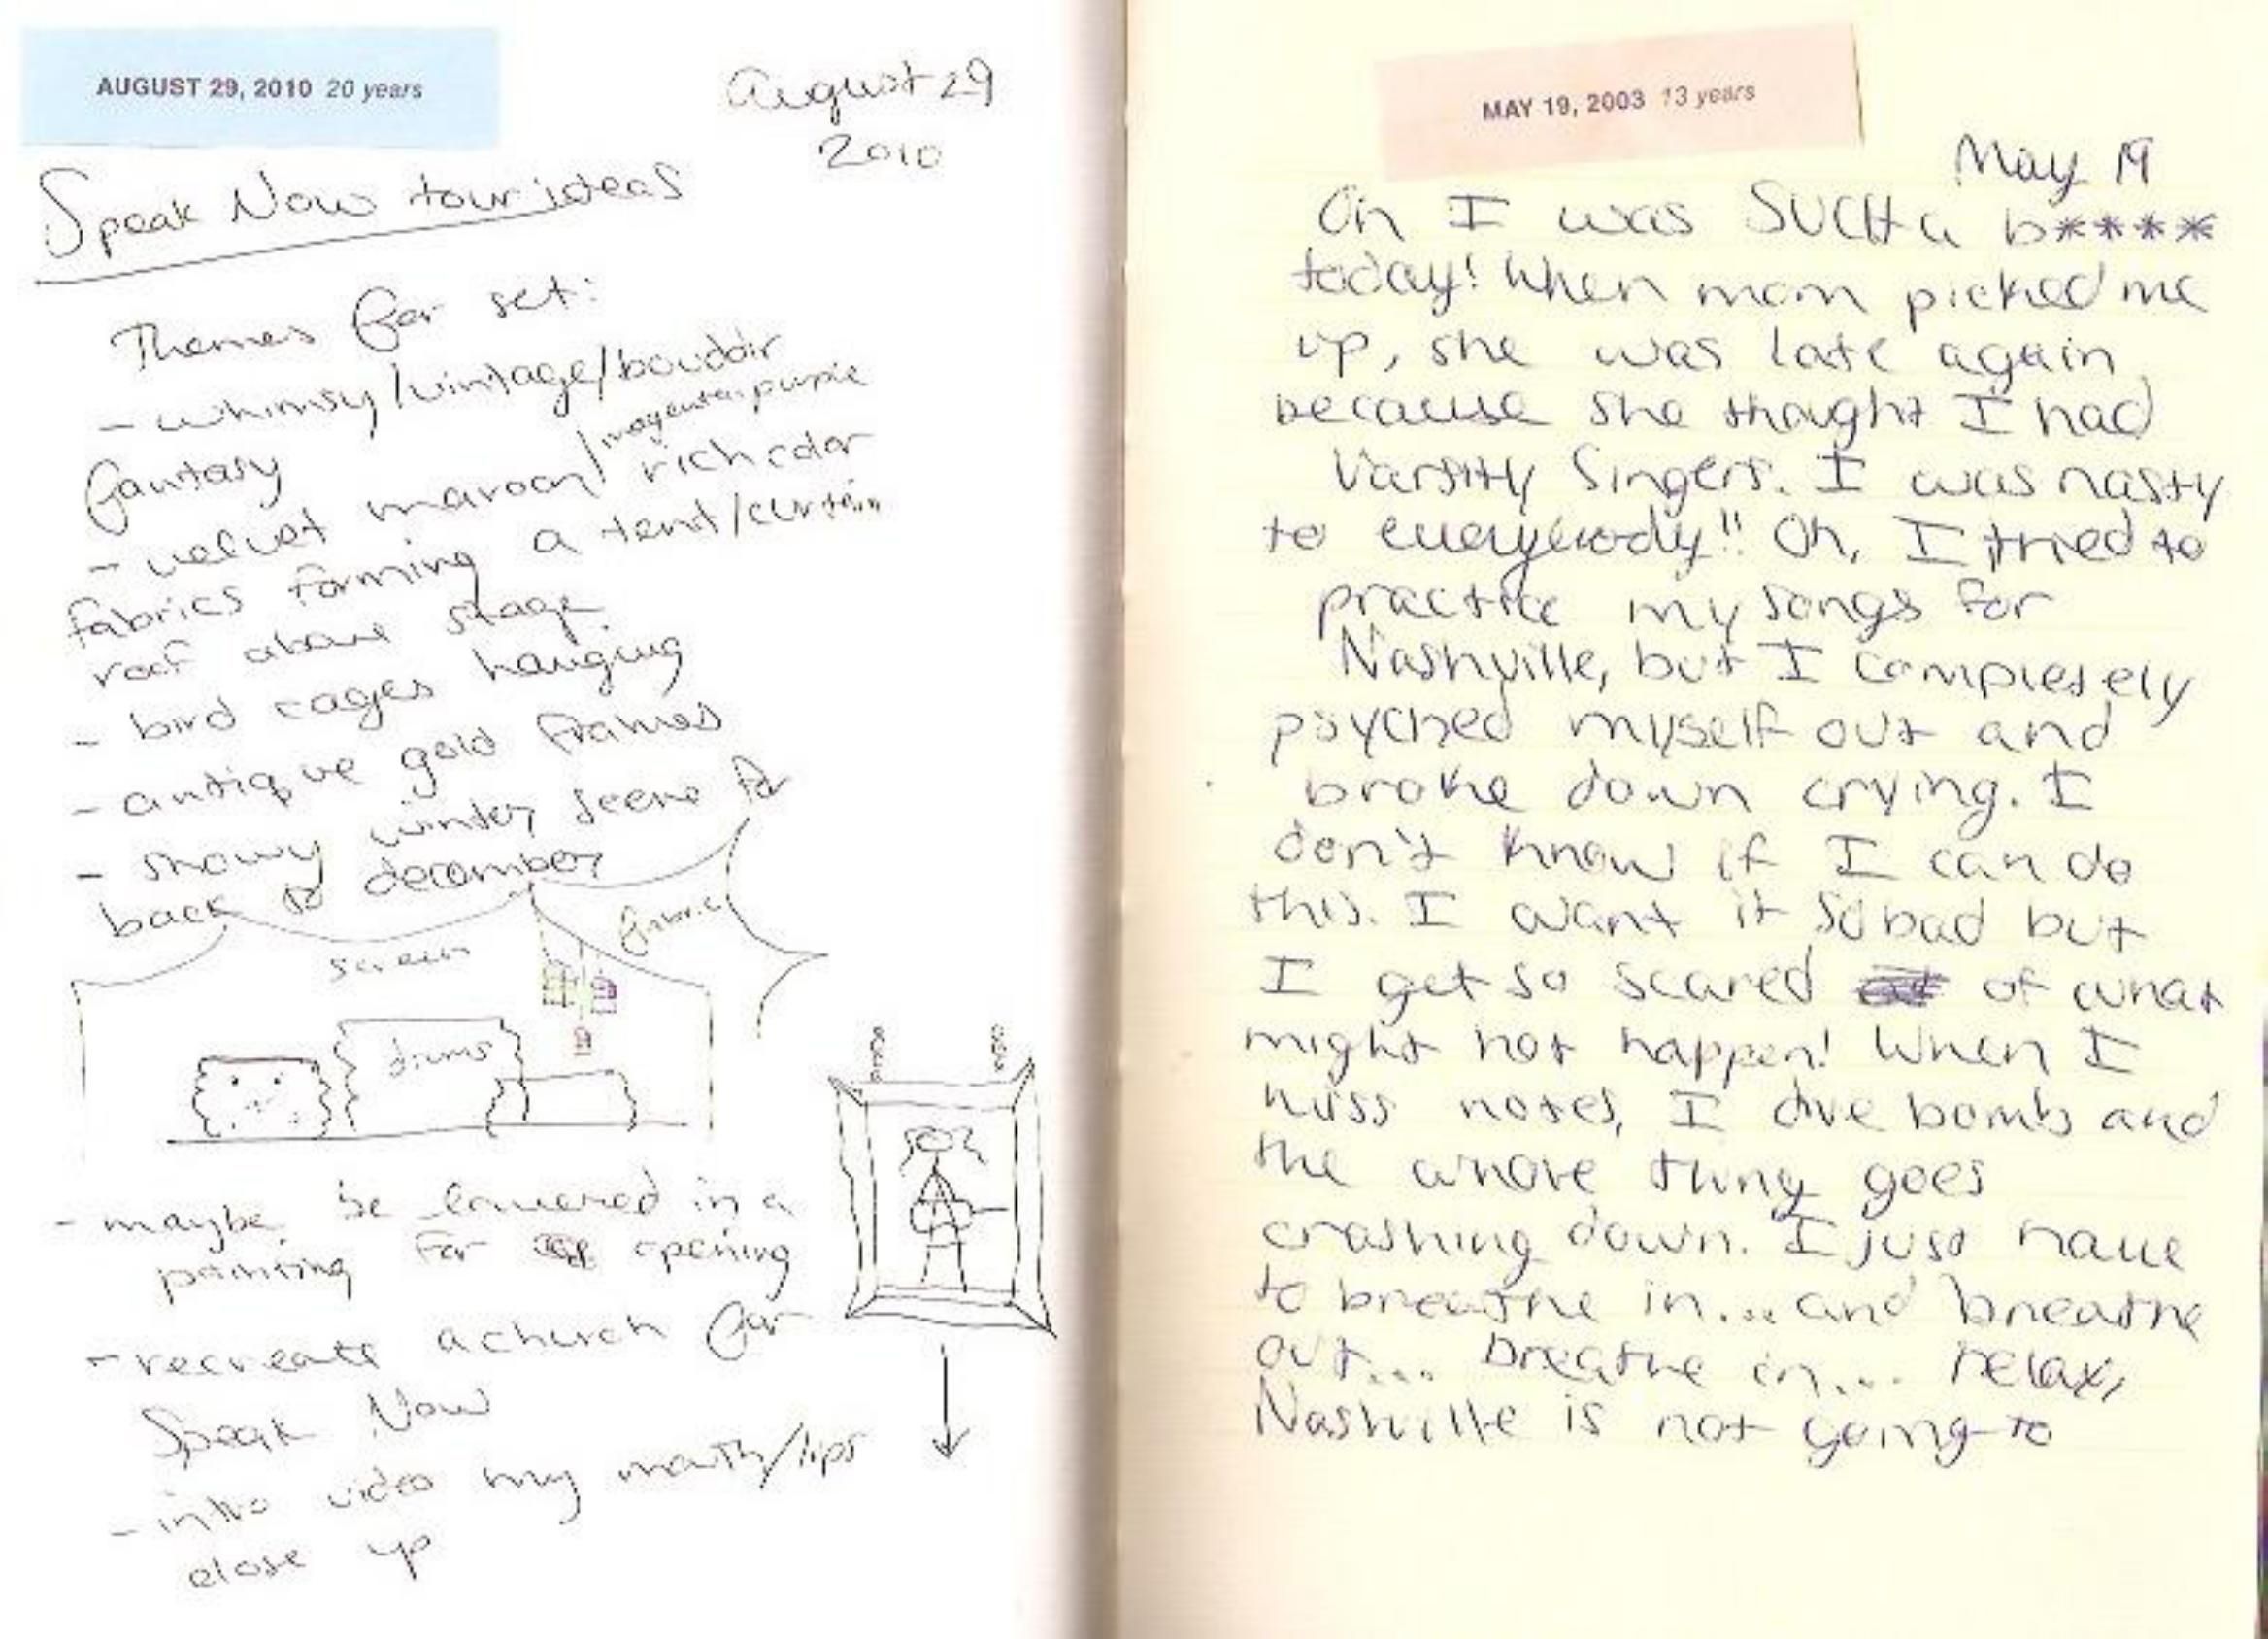 AUGUST 29, 2010 20 years
August 29
2010
Speak Now tour ideas
Themes for set:
- whimsy/vintage/boudoir
fantasy
magenta, purple
- velvet maroon/ rich color
fabrics forming a tent/curtain
roof above stage
- bird cages hanging
- antique gold frames
- snowy winter scene for
back to december
screen
fabric
drums
- maybe be lowered in a
painting for opening
- recreate a church for
Speak Now
- intro video my mouth/lips
close up
MAY 19, 2003 13 years
May 19
Oh I was SUCH a b****
today! When mom picked me
up, she was late again
because she thought I had
Varsity Singers. I was nasty
to everybody!! Oh, I tried to
practice my songs for
Nashville, but I completely
psyched myself out and
broke down crying. I
don't know if I can do
this. I want it so bad but
I get so scared of what
might not happen! When I
miss notes, I dive bomb and
the whole thing goes
crashing down. I just have
to breathe in... and breathe
out... breathe in... relax,
Nashville is not going to